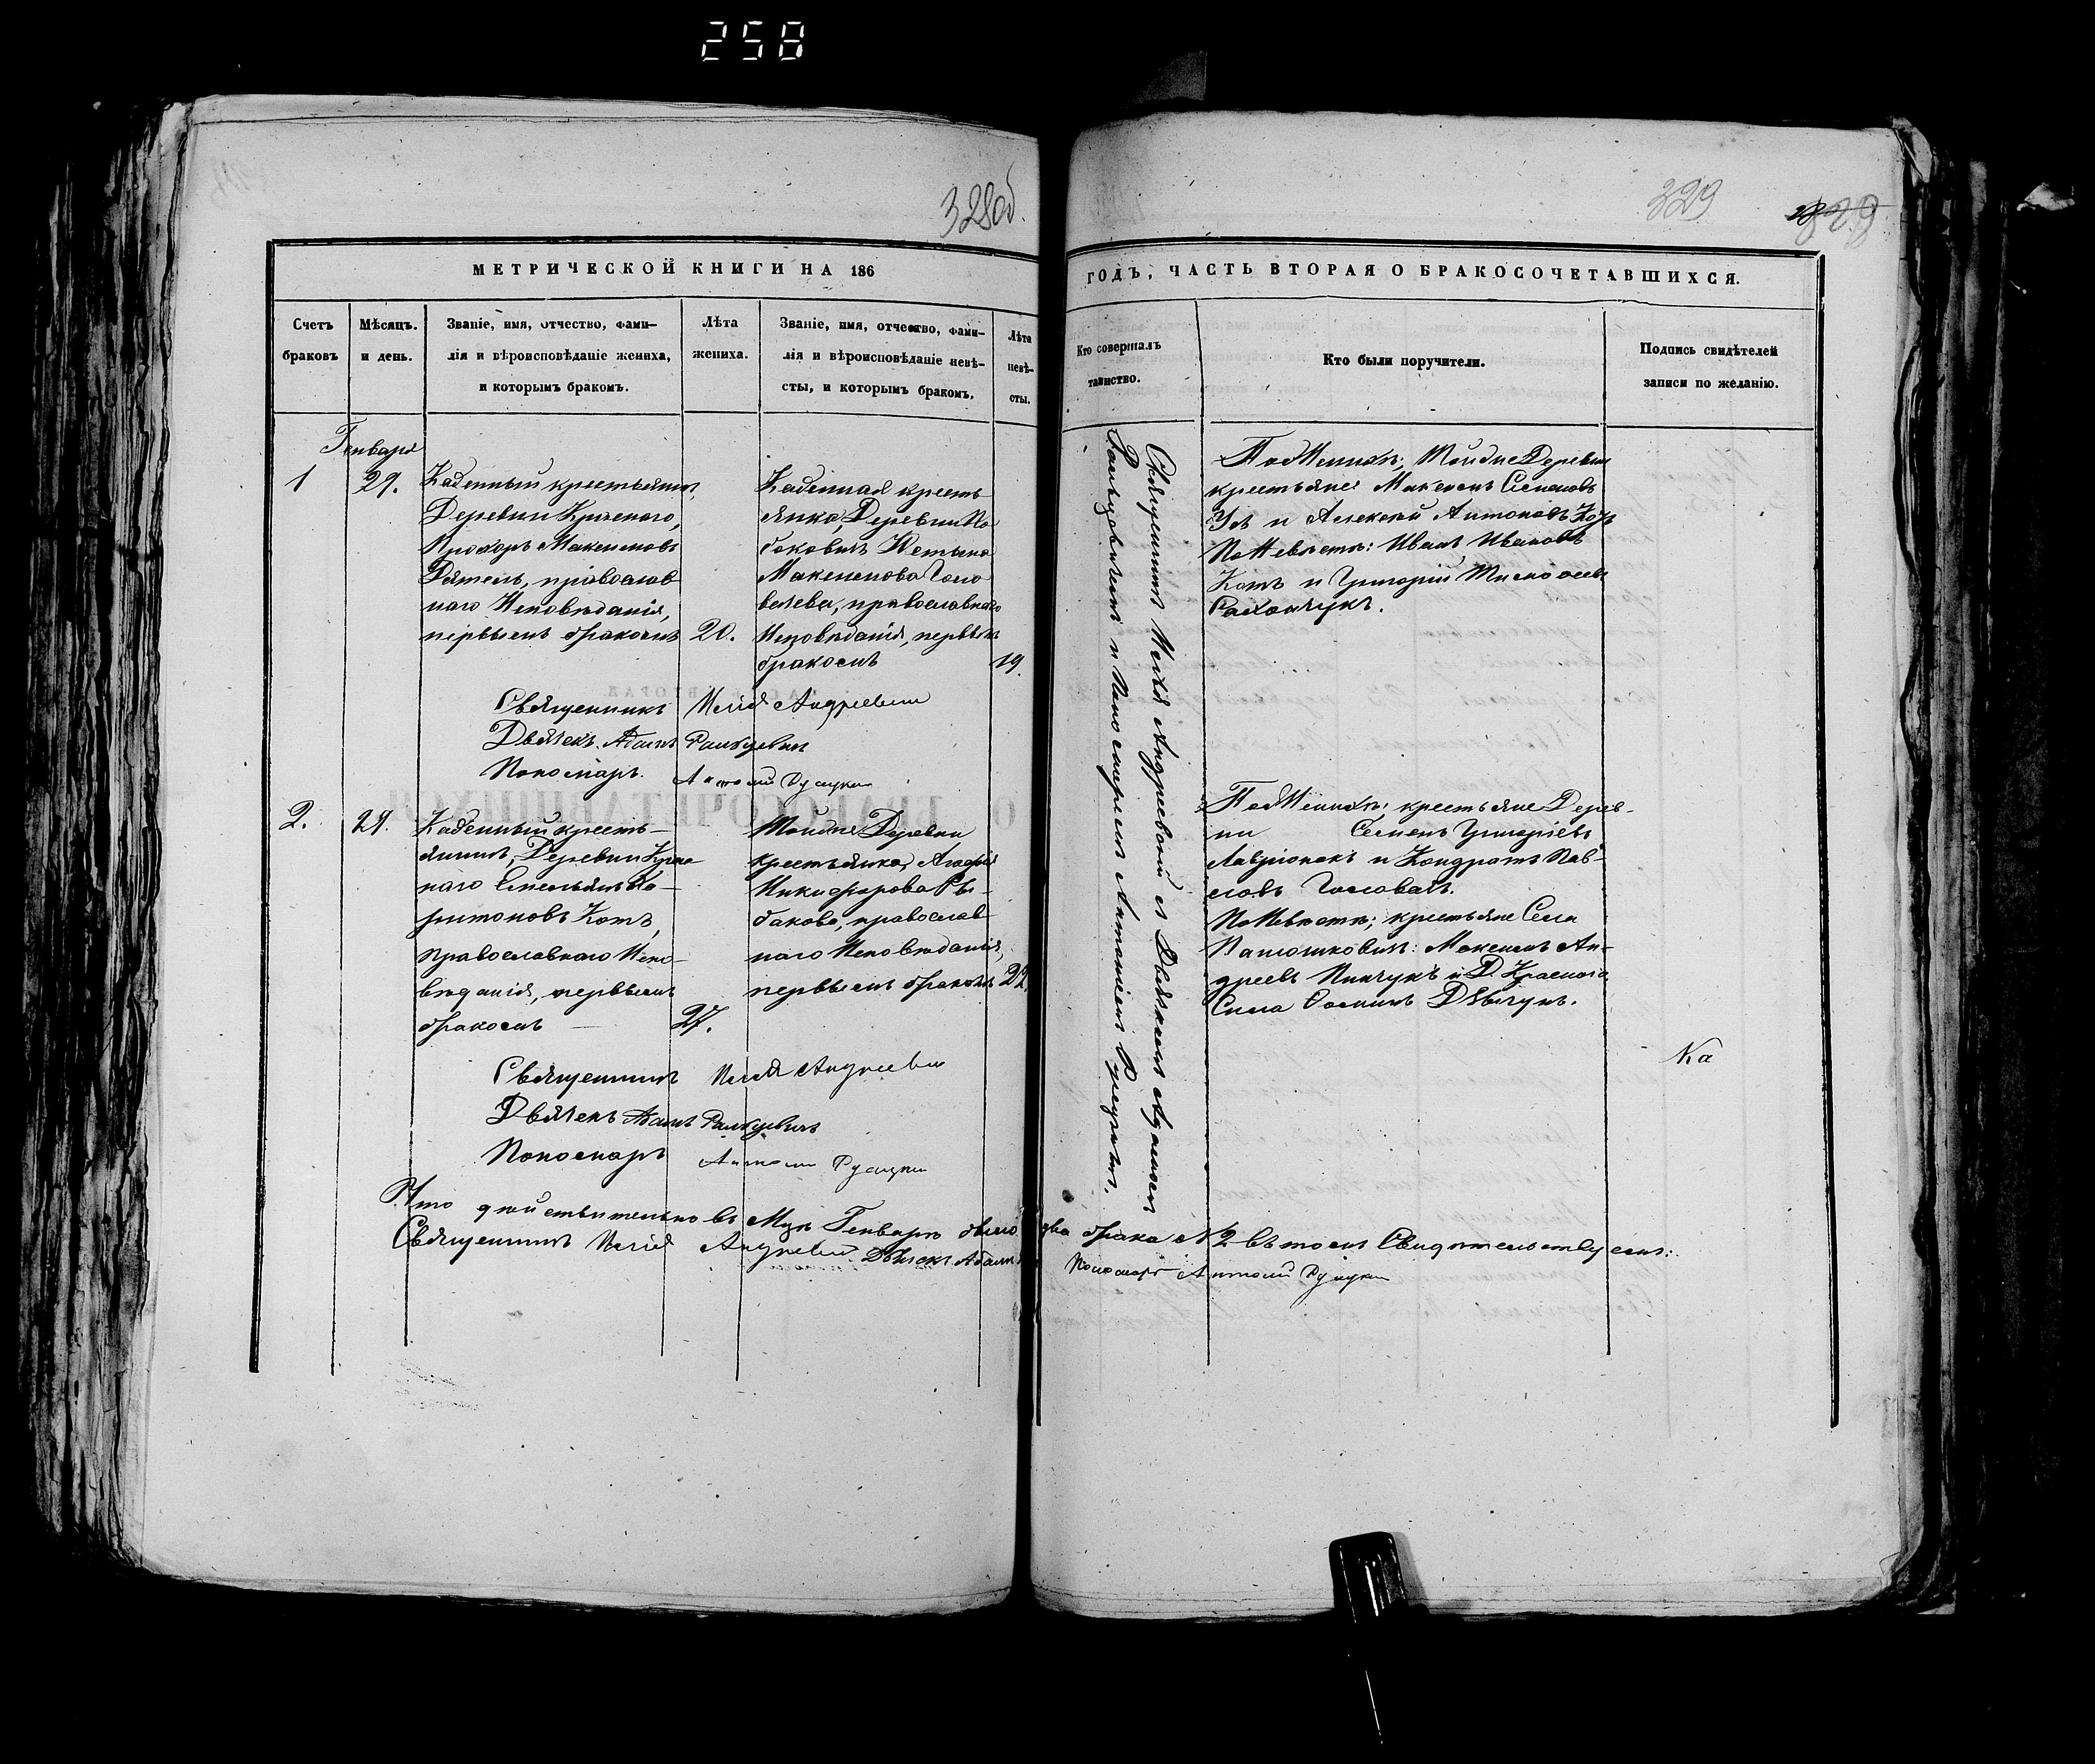 258
328об.
329
МЕТРИЧЕСКОЙ КНИГИ НА 186
ГОДЪ, ЧАСТЬ ВТОРАЯ О БРАКОСОЧЕТАВШИХСЯ.
Счетъ
браковъ
Мѣсяцъ.
и день.
Званіе, имя, отчество, фами-
лія и вѣроисповѣданіе жениха,
и которымъ бракомъ.
Лѣта
жениха.
Званіе, имя, отчество, фами-
лія и вѣроисповѣданіе невѣ-
сты, и которымъ бракомъ.
Лѣта
невѣ-
сты.
Кто совершалъ
таинство.
Кто были поручители.
Подпись свидѣтелей
записи по желанію.
Генваря
1
29.
Казенный крестьянинъ,
Деревни Красного,
Прохоръ Максимовъ
Дятелъ, православ
наго Исповѣданія,
первымъ бракомъ
20.
Казенная кресть
янка Деревни
Максимова
православнаго
Исповѣданія, первымъ
бракомъ
19.
Священникъ Исаія Андреевскій
Дьячекъ Адамъ
Пономарь Антоній Русецкій
Священникъ Исаія Андреевскій съ Дьячкомъ Адамомъ
и Пономаремъ Антоніемъ Русецкимъ.
По Женихѣ: Тойже Деревни
крестьяне Максимъ Семеновъ
и Алексѣй Антоновъ
По Невѣстѣ: Иванъ Ивановъ
Котъ и Григорій
2.
29.
Казенный кресть-
янинъ, Деревни Крас
наго Емельянъ Ха-
ритоновъ Котъ,
православнаго Испо-
вѣданія, первымъ
бракомъ
27.
Тойже Деревни
крестьянка, Агафія
Никифорова Ры-
бакова, православ-
наго Исповѣданія,
первымъ бракомъ
22.
По Женихѣ: крестьяне Дерев-
ни Семенъ Григоріевъ
и Кондратъ Пав-
ловъ Головачъ.
По Невѣстѣ: крестьяне Села
Максимъ Ан-
дреевъ Пинчукъ и Д. Краснаго
Сила
Священникъ Исаія Андреевскій
Дьячекъ Адамъ
Пономарь Антоній Русецкій
Ка
Что дѣйствительно въ Мцѣ Генварѣ было два брака № 2 въ томъ Свидѣтельствуемъ:
Священникъ Исаія Андреевскій Дьячекъ Адамъ
Пономарь Антоній Русецкій